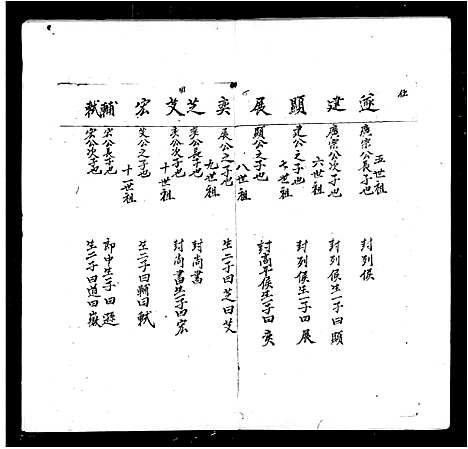 仕
遊 廣宗公長子也 五世祖 封列侯
建 廣宗公次子也 六世祖 封列侯生一子曰顯
顯 建公之子也 七世祖 封列侯生一子曰展
展 顯公之子也 八世祖 封高平侯生一子曰奕
奕 展公之子也 九世祖 生二子曰芝曰艾
芝 奕公長子也 封尚書
艾 奕公次子也 十世祖 封尚書生一子曰宏
宏 艾公之子也 十一世祖 生二子曰輔曰軾
輔 宏公長子也 郎中生一子曰遜
軾 宏公次子也 生二子曰道曰嶽